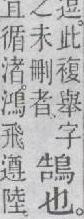 逗此複舉字
之未刪者
鵠也
循渚鴻飛遵陸